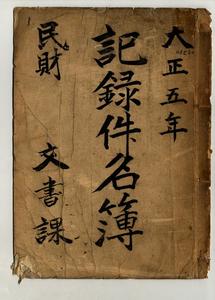 大正五年
記録件名簿
民財 文書課